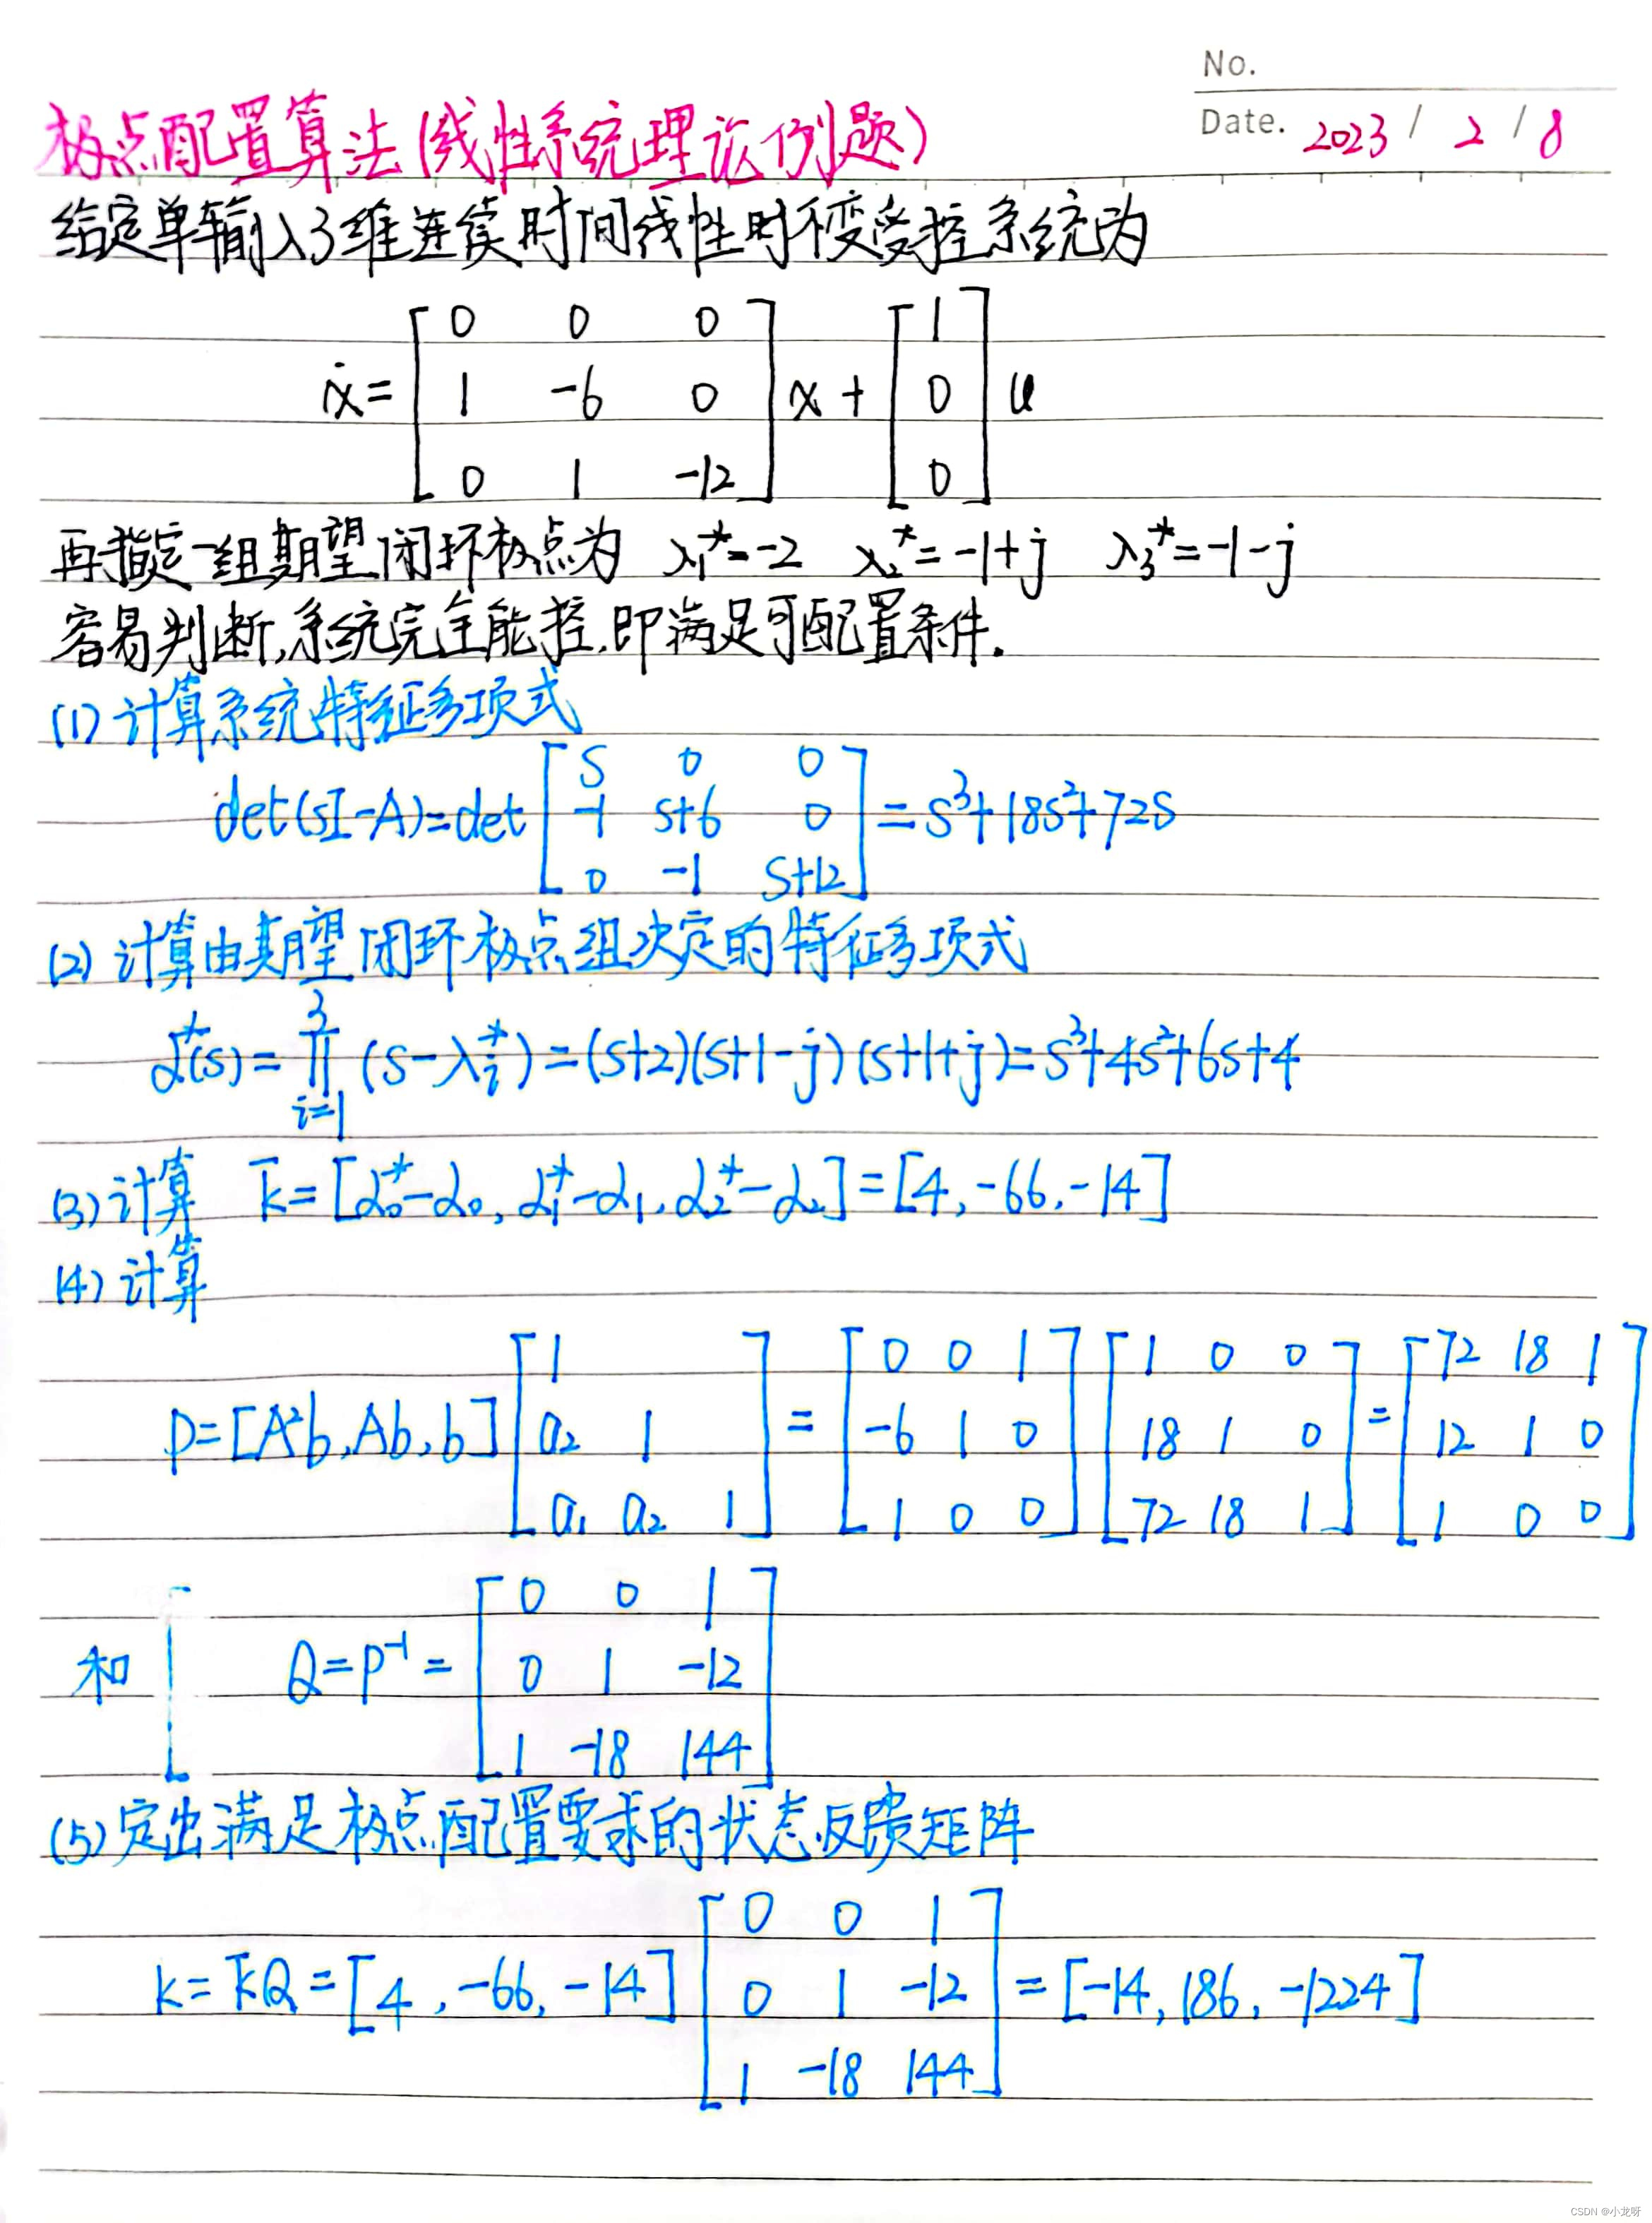 No.
Date. 2023 / 2 / 8
极点配置算法(线性系统理论例题)
给定单输入3维连续时间线性时不变受控系统为
ẋ = [0 0 0; 1 -6 0; 0 1 -12] x + [1; 0; 0] u
再指定一组期望闭环极点为 λ₁* = -2 λ₂* = -1+j λ₃* = -1-j
容易判断,系统完全能控,即满足可配置条件.
(1) 计算系统特征多项式
det(sI-A) = det [s 0 0; -1 s+6 0; 0 -1 s+12] = s³+18s²+72s
(2) 计算由期望闭环极点组决定的特征多项式
α*(s) = ∏ᵢ₌₁³ (s-λᵢ*) = (s+2)(s+1-j)(s+1+j) = s³+4s²+6s+4
(3) 计算 k̄ = [α₀*-α₀, α₁*-α₁, α₂*-α₂] = [4, -66, -14]
(4) 计算
P = [A²b, Ab, b] [1; a₂ 1; a₁ a₂ 1] = [0 0 1; -6 1 0; 1 0 0] [1 0 0; 18 1 0; 72 18 1] = [72 18 1; 12 1 0; 1 0 0]
和 [ Q = P⁻¹ = [0 0 1; 0 1 -12; 1 -18 144]
(5) 定出满足极点配置要求的状态反馈矩阵
k = k̄Q = [4, -66, -14] [0 0 1; 0 1 -12; 1 -18 144] = [-14, 186, -1224]
CSDN @小龙呀